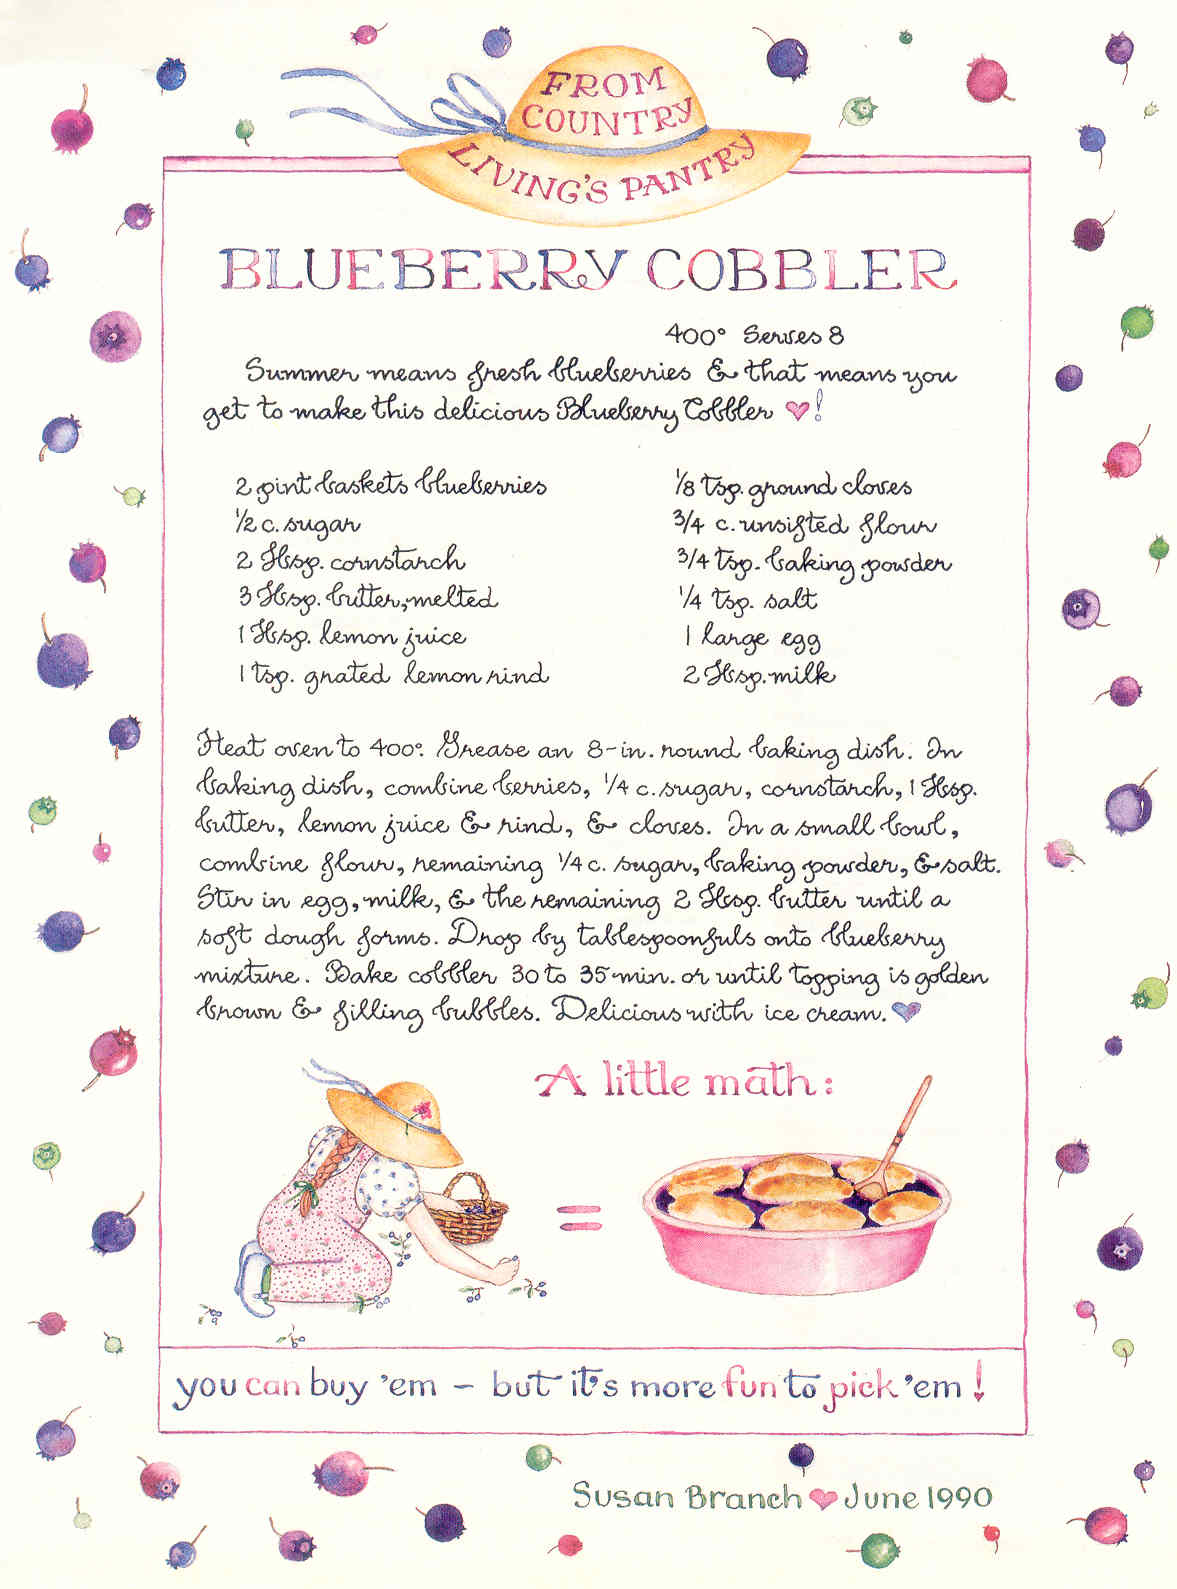 FROM
COUNTRY
LIVING'S PANTRY
BLUEBERRY COBBLER
400° Serves 8
Summer means fresh blueberries & that means you
get to make this delicious Blueberry Cobbler ♥!
2 pint baskets blueberries
1/2 c. sugar
2 Tbsp. cornstarch
3 Tbsp. butter, melted
1 Tbsp. lemon juice
1 tsp. grated lemon rind
1/8 tsp. ground cloves
3/4 c. unsifted flour
3/4 tsp. baking powder
1/4 tsp. salt
1 large egg
2 Tbsp. milk
Heat oven to 400°. Grease an 8-in. round baking dish. In
baking dish, combine berries, 1/4 c. sugar, cornstarch, 1 Tbsp.
butter, lemon juice & rind, & cloves. In a small bowl,
combine flour, remaining 1/4 c. sugar, baking powder, & salt.
Stir in egg, milk, & the remaining 2 Tbsp. butter until a
soft dough forms. Drop by tablespoonfuls onto blueberry
mixture. Bake cobbler 30 to 35 min. or until topping is golden
brown & filling bubbles. Delicious with ice cream. ♥
A little math:
=
you can buy 'em – but it's more fun to pick 'em!
Susan Branch ♥ June 1990